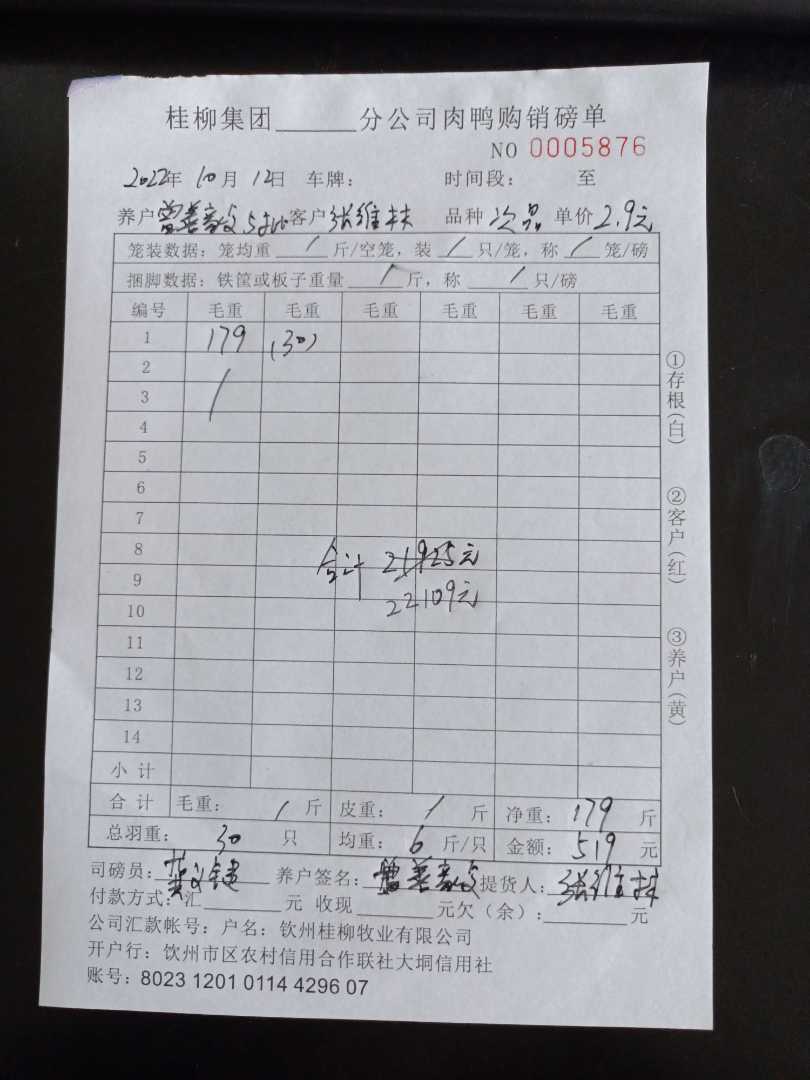 桂柳集团______分公司肉鸭购销磅单
NO 0005876
2022年 10月 12日 车牌: 时间段: 至
养户 曾善 客户 张维林 品种 次品 单价 2.9元
笼装数据:笼均重 / 斤/空笼,装 / 只/笼,称 / 笼/磅
捆脚数据:铁筐或板子重量 / 斤,称 / 只/磅
编号 毛重 毛重 毛重 毛重 毛重 毛重
1 179 (30)
2
3 /
4
5
6
7
8
9
10
11
12
13
14
合计 21925元
22109元
小计
合计 毛重: / 斤 皮重: / 斤 净重: 179 斤
总羽重: 30 只 均重: 6 斤/只 金额: 519 元
司磅员: 养户签名: 曾善 提货人: 张维林
付款方式:汇______元 收现______元欠(余):______元
公司汇款帐号:户名:钦州桂柳牧业有限公司
开户行:钦州市区农村信用合作联社大垌信用社
账号:8023 1201 0114 4296 07
①存根(白)
②客户(红)
③养户(黄)